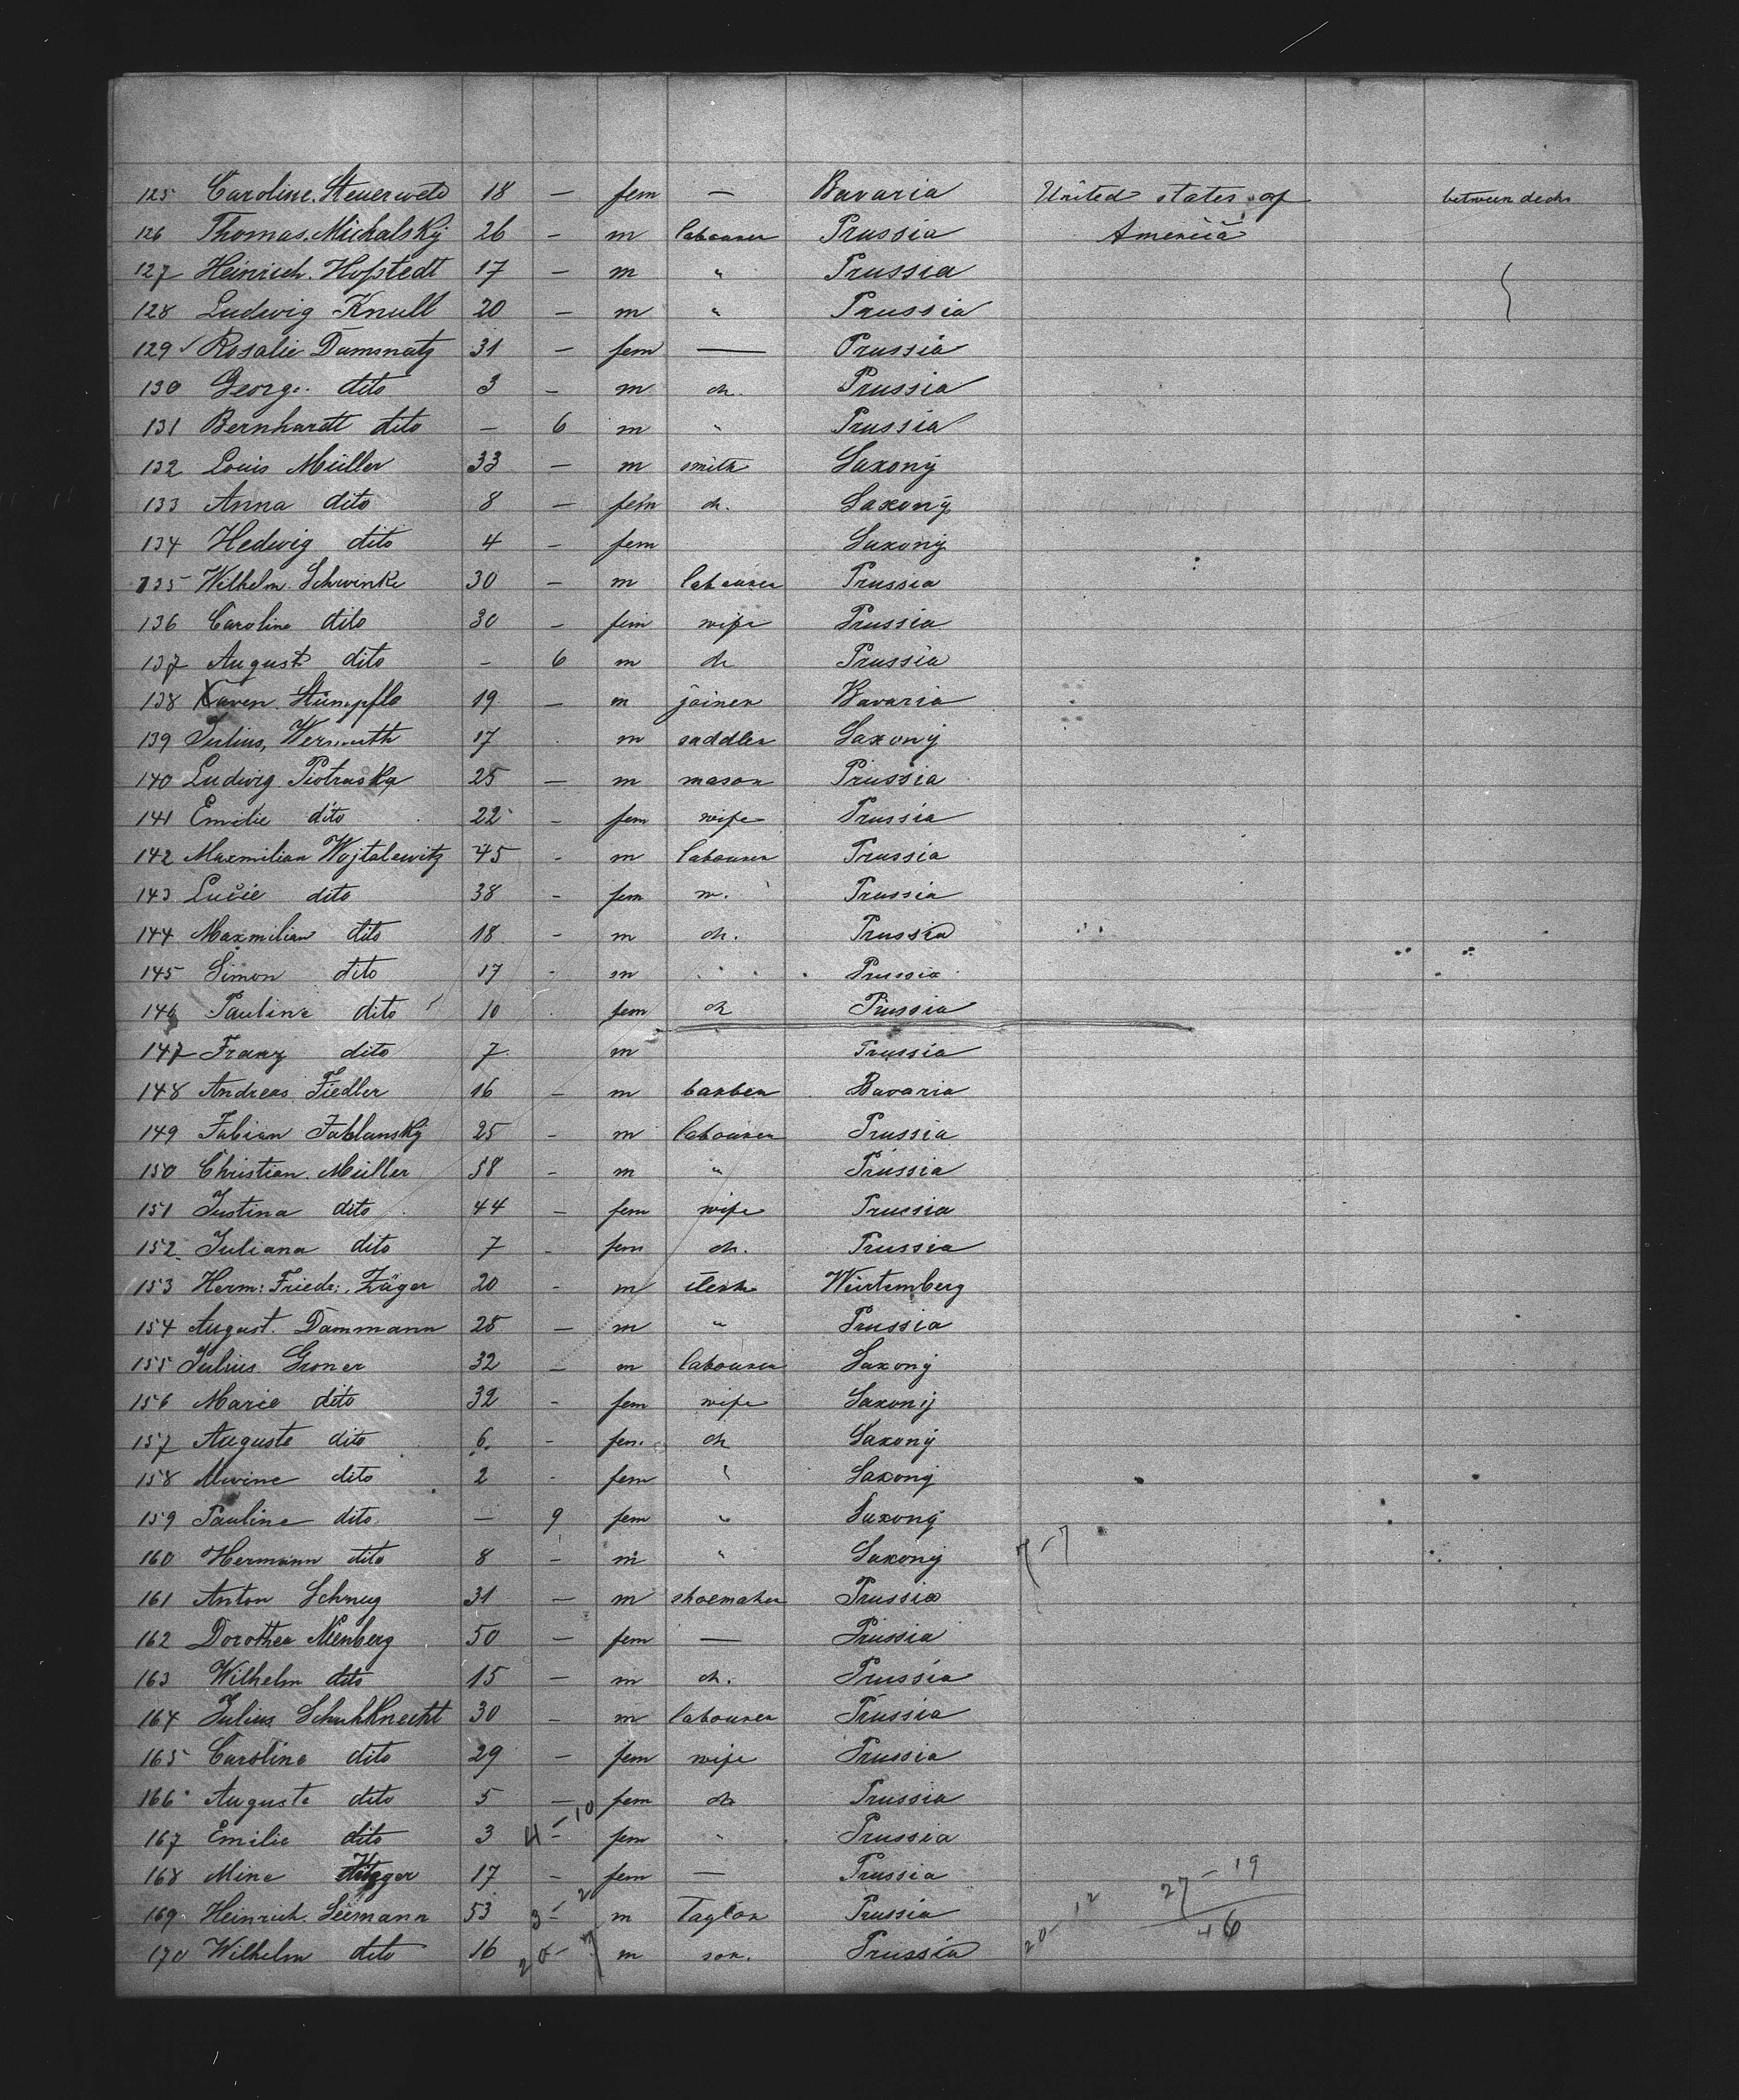 125 Caroline Steuerwald 18 — fem — Bavaria United states of between decks
126 Thomas Michalsky 26 - m labourer Prussia America
127 Heinrich Hofstedt 17 — m " Prussia
128 Ludwig Knull 20 — m " Prussia
129 Rosalie Damsnatz 31 — fem — Prussia
130 George dito 3 - m ch. Prussia
131 Bernhardt dito — 6 m " Prussia
132 Louis Müller 33 — m smith Saxony
133 Anna dito 8 — fem ch. Saxony
134 Hedwig dito 4 - fem Saxony
135 Wilhelm Schwinke 30 — m labourer Prussia
136 Caroline dito 30 - fem wife Prussia
137 August dito - 6 m ch Prussia
138 Xaver Stümpfle 19 — m joiner Bavaria
139 Julius, Wermuth 17 m saddler Saxony
140 Ludwig Piotraska 25 — m mason Prussia
141 Emilie dito 22 - fem wife Prussia
142 Maxmilian Wojtalewitz 45 - m labourer Prussia
143 Lucie dito 38 - fem w. Prussia
144 Maxmilian dito 18 - m ch. Prussia
145 Simon dito 17 - m " Prussia
146 Pauline dito 10 fem ch Prussia
147 Franz dito 7 m Prussia
148 Andreas Fiedler 16 — m barber Bavaria
149 Fabian Jablansky 25 - m labourer Prussia
150 Christian Müller 58 - m " Prussia
151 Justina dito 44 — fem wife Prussia
152 Juliana dito 7 - fem ch. Prussia
153 Herm: Friedr: Zäger 20 - m clerk Würtemberg
154 August Dammann 28 — m " Prussia
155 Julius Groner 32 — m labourer Saxony
156 Marie dito 32 - fem wife Saxony
157 Auguste dito 6 - fem ch Saxony
158 Alwine dito 2 - fem " Saxony
159 Pauline dito — 9 fem " Saxony
160 Hermann dito 8 — m " Saxony 7 - 7
161 Anton Schnug 31 — m shoemaker Prussia
162 Dorothea Nienberg 50 — fem — Prussia
163 Wilhelm dito 15 — m ch. Prussia
164 Julius Schuhknecht 30 - m labourer Prussia
165 Caroline dito 29 — fem wife Prussia
166 Auguste dito 5 — fem ch Prussia
167 Emilie dito 3 4 - 10 fem " Prussia
168 Mine 17 - fem — Prussia 27 - 19
169 Heinrich Seemann 53 3 - 2 m Taylor Prussia 20 - 12 46
170 Wilhelm dito 16 m son. Prussia